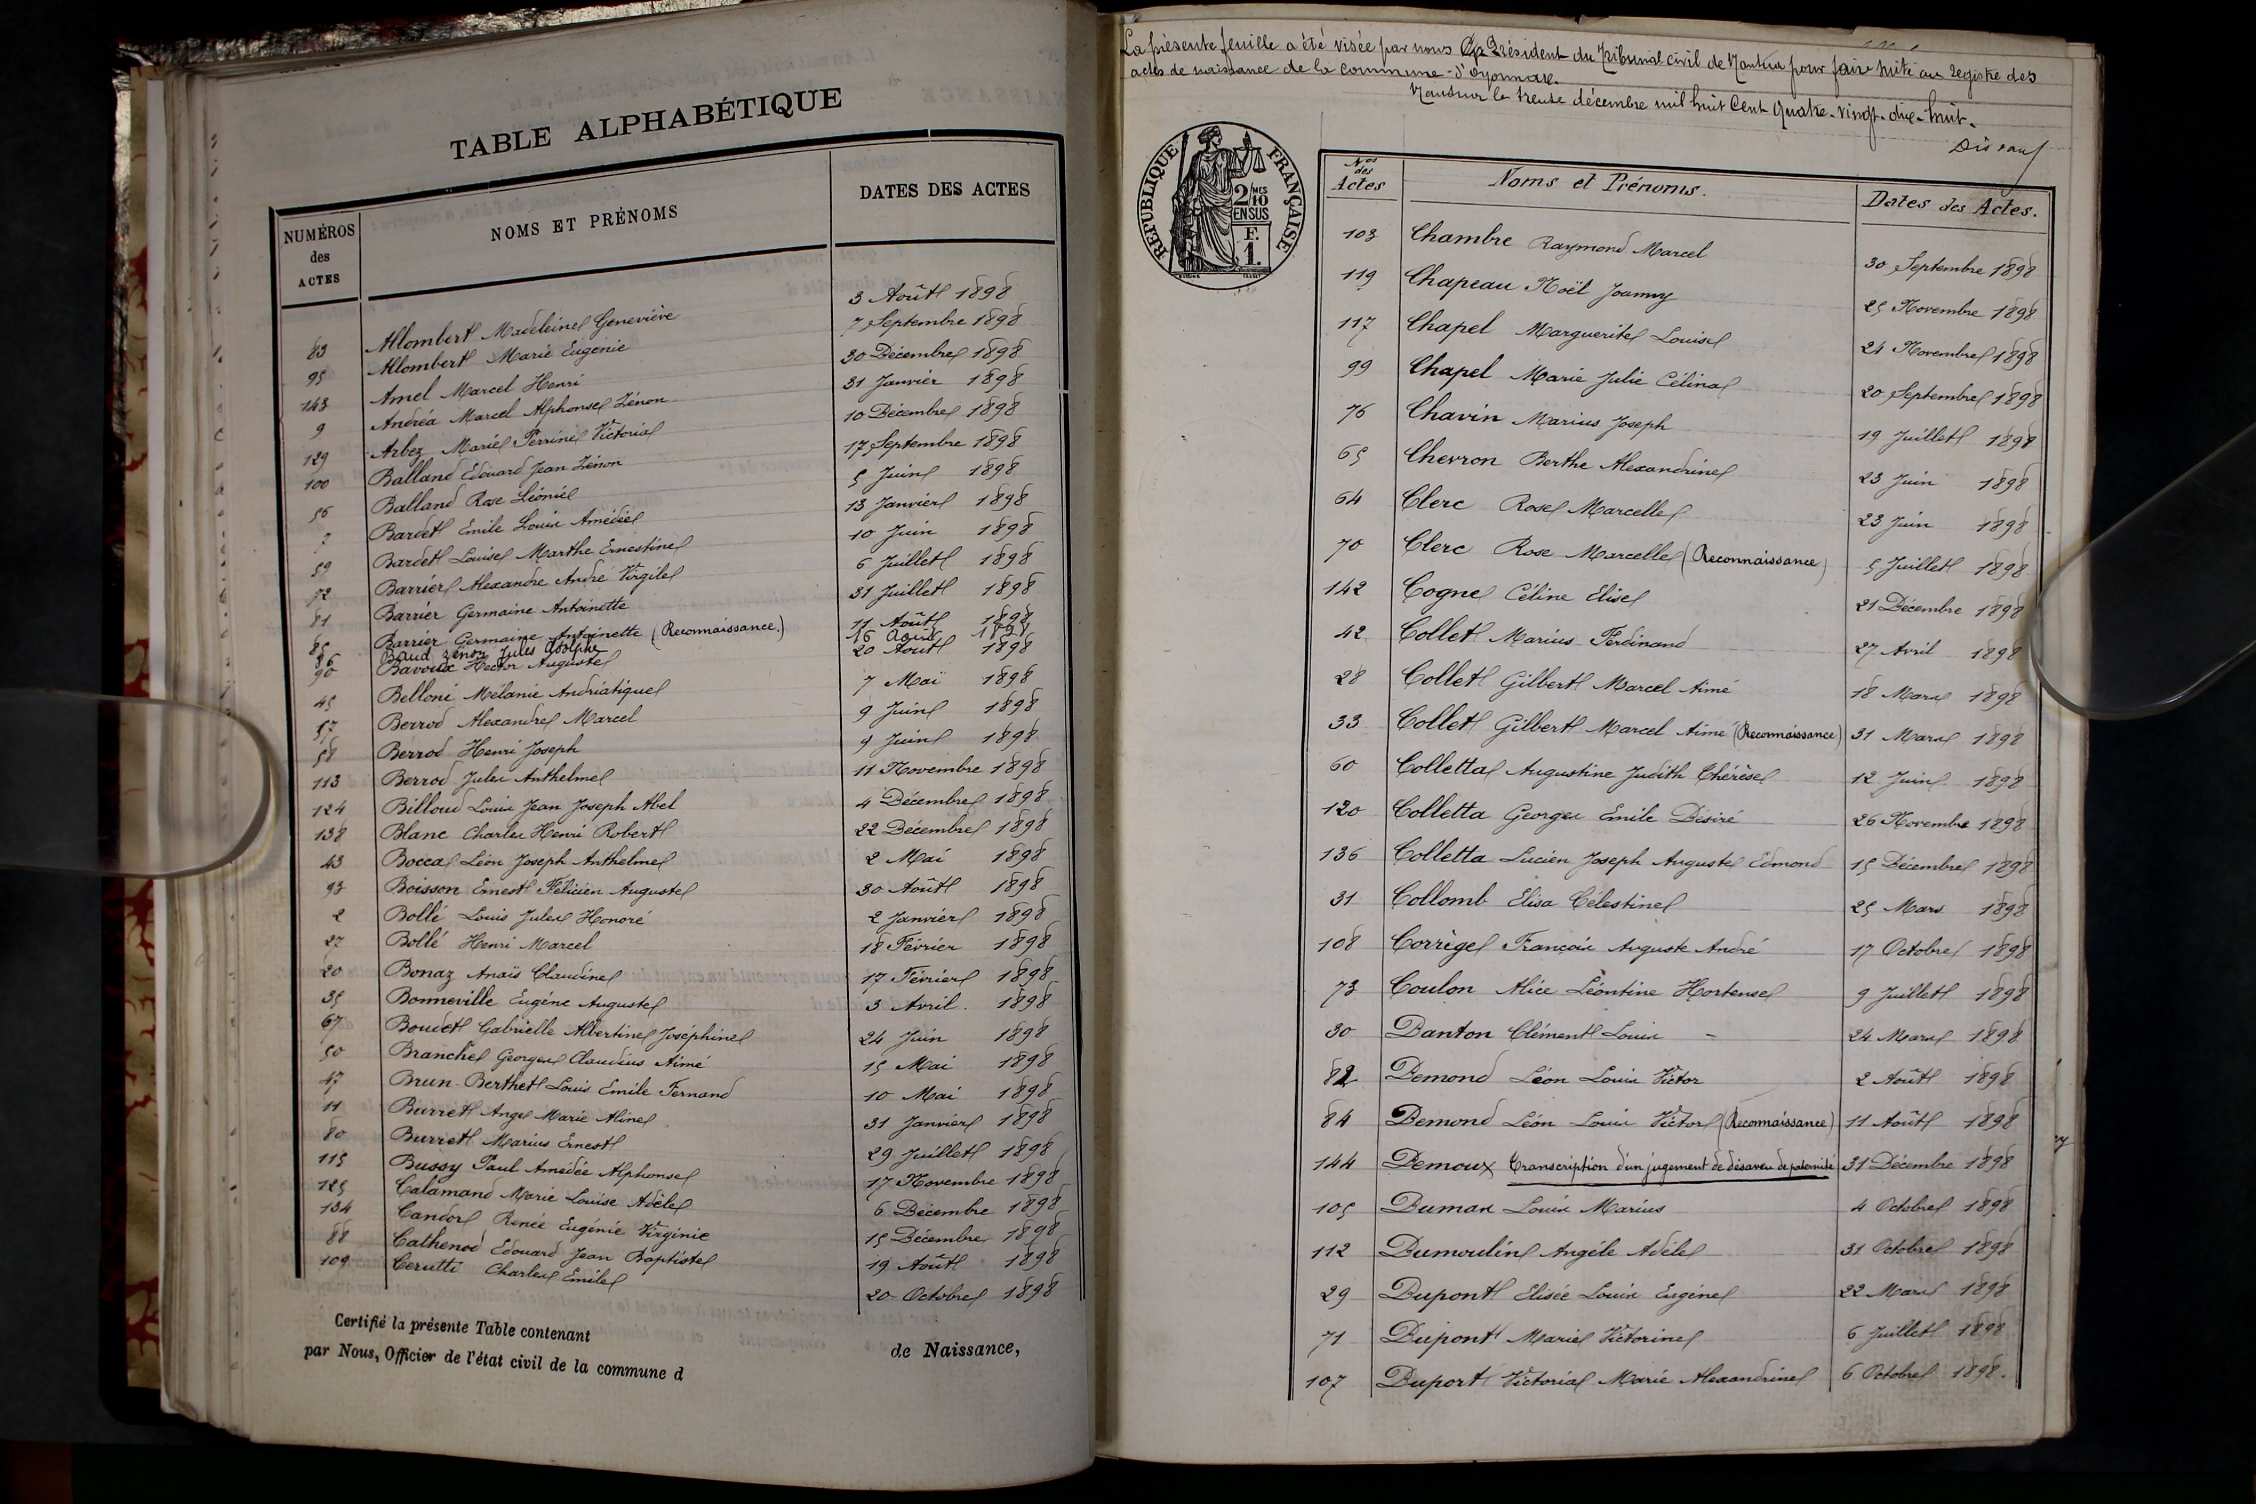 TABLE ALPHABÉTIQUE
NUMÉROS des ACTES NOMS ET PRÉNOMS DATES DES ACTES
83 Allombert Madeleine Geneviève 3 Août 1898
95 Allombert Marie Eugénie 7 Septembre 1898
143 Amel Marcel Henri 30 Décembre 1898
9 Andréa Marcel Alphonse Zénon 31 Janvier 1898
129 Arbez Marie Perrine Victoria 10 Décembre 1898
100 Balland Edouard Jean Zénon 17 Septembre 1898
56 Balland Rose Léonie 5 Juin 1898
7 Bardet Emile Louis Amédée 13 Janvier 1898
59 Bardet Louise Marthe Ernestine 10 Juin 1898
72 Barrier Alexandre André Virgile 6 Juillet 1898
81 Barrier Germaine Antoinette 31 Juillet 1898
85 Barrier Germaine Antoinette (Reconnaissance.) 11 Août 1898
86 Baud Zénon Jules Adolphe 16 Août 1898
90 Bavoux Hector Auguste 20 Août 1898
45 Belloni Mélanie Andriatique 7 Mai 1898
57 Berrod Alexandre Marcel 9 Juin 1898
58 Berrod Henri Joseph 9 Juin 1898
113 Berrod Jules Anthelme 11 Novembre 1898
124 Billoud Louis Jean Joseph Abel 4 Décembre 1898
138 Blanc Charles Henri Robert 22 Décembre 1898
43 Bocca Léon Joseph Anthelme 2 Mai 1898
93 Boisson Ernest Félicien Auguste 30 Août 1898
2 Bollé Louis Jules Honoré 2 Janvier 1898
27 Bollé Henri Marcel 18 Février 1898
20 Bonaz Anaïs Claudine 17 Février 1898
35 Bonneville Eugène Auguste 3 Avril 1898
67 Boudet Gabrielle Albertine Joséphine 24 Juin 1898
50 Branche Georges Claudius Aimé 15 Mai 1898
47 Brun-Berthet Louis Emile Fernand 10 Mai 1898
11 Burret Ange Marie Aline 31 Janvier 1898
80 Burret Marius Ernest 29 Juillet 1898
115 Bussy Paul Amédée Alphonse 17 Novembre 1898
125 Calamand Marie Louise Adèle 6 Décembre 1898
134 Candor Renée Eugénie Virginie 15 Décembre 1898
88 Cathenod Edouard Jean Baptiste 19 Août 1898
109 Cerutti Charles Emile 20 Octobre 1898
Certifié la présente Table contenant de Naissance,
par Nous, Officier de l'état civil de la commune d
La présente feuille a été visée par nous Président du Tribunal civil de Nantua pour faire suite au registre des
actes de naissance de la commune d'Oyonnax.
Nantua le trente décembre mil huit cent quatre-vingt-dix-huit.
RÉPUBLIQUE FRANÇAISE
2/10 MES
EN SUS
F.
1.
Nos des Actes Noms et Prénoms. Dates des Actes.
103 Chambre Raymond Marcel 30 Septembre 1898
119 Chapeau Noël Joanny 25 Novembre 1898
117 Chapel Marguerite Louise 24 Novembre 1898
99 Chapel Marie Julie Célina 20 Septembre 1898
76 Chavin Marius Joseph 19 Juillet 1898
65 Chevron Berthe Alexandrine 23 Juin 1898
64 Clerc Rose Marcelle 23 Juin 1898
70 Clerc Rose Marcelle (Reconnaissance) 5 Juillet 1898
142 Cogne Céline Elise 21 Décembre 1898
42 Collet Marius Ferdinand 27 Avril 1898
28 Collet Gilbert Marcel Aimé 18 Mars 1898
33 Collet Gilbert Marcel Aimé (Reconnaissance) 31 Mars 1898
60 Colletta Augustine Judith Thérèse 12 Juin 1898
120 Colletta Georges Emile Désiré 26 Novembre 1898
136 Colletta Lucien Joseph Auguste Edmond 15 Décembre 1898
31 Collomb Elisa Célestine 25 Mars 1898
108 Corrège François Auguste André 17 Octobre 1898
73 Coulon Alice Léontine Hortense 9 Juillet 1898
30 Danton Clément Louis - 24 Mars 1898
82 Demond Léon Louis Victor 2 Août 1898
84 Demond Léon Louis Victor (Reconnaissance) 11 Août 1898
144 Demoux Transcription d'un jugement de désaveu de paternité 31 Décembre 1898
105 Dumas Louis Marius 4 Octobre 1898
112 Dumoulin Angèle Adèle 31 Octobre 1898
29 Dupont Elisée Louis Eugène 22 Mars 1898
71 Dupont Marie Victorine 6 Juillet 1898
107 Duport Victoria Marie Alexandrine 6 Octobre 1898.